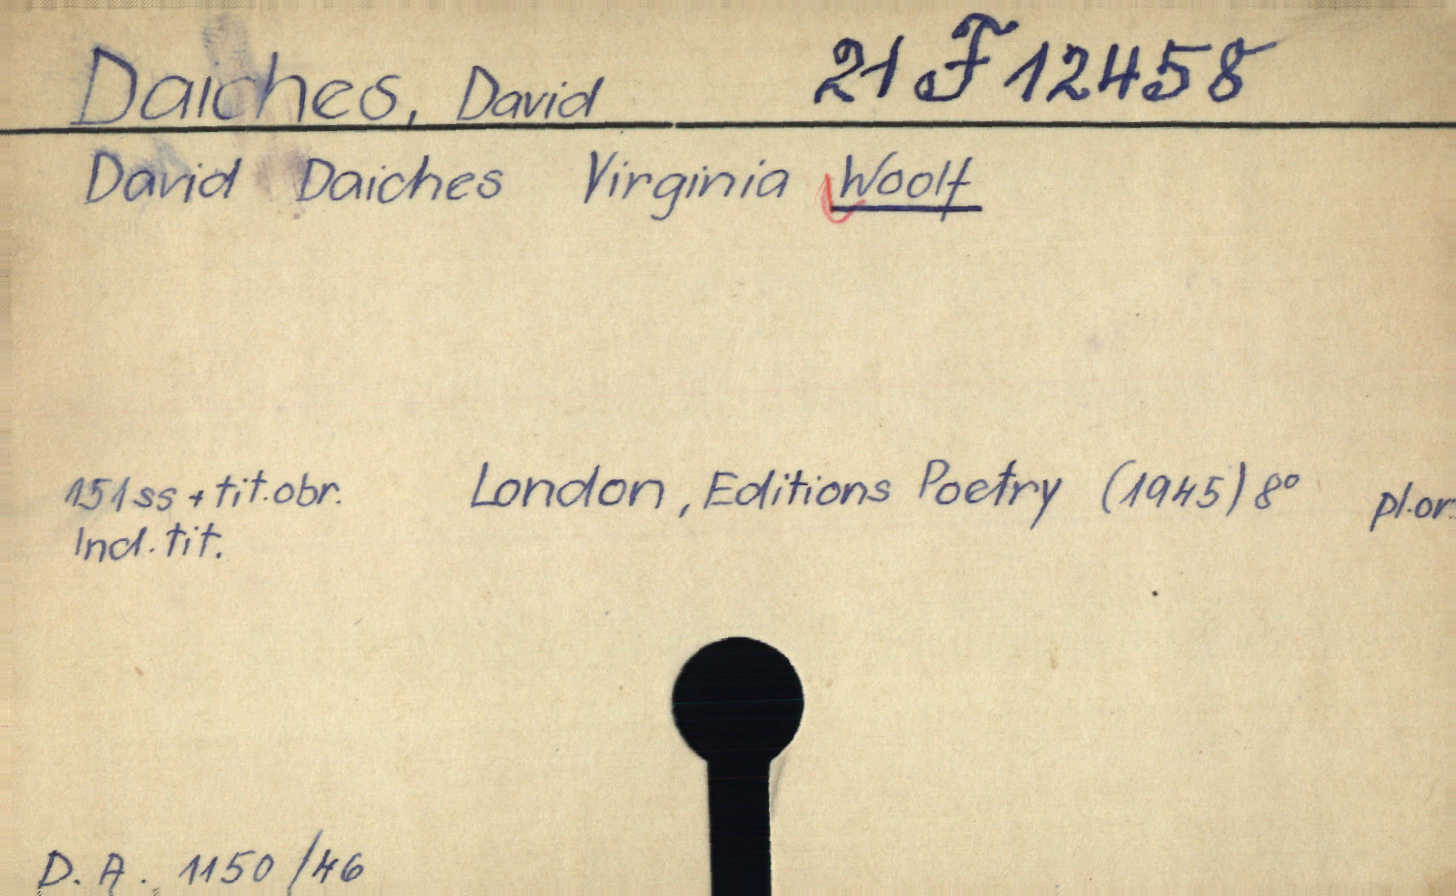 Daiches, David 21 F 12458
David Daiches Virginia Woolf
151 ss + tit. obr. London, Editions Poetry (1945) 8° pl. or.
Incl. tit.
D. A. 1150/46